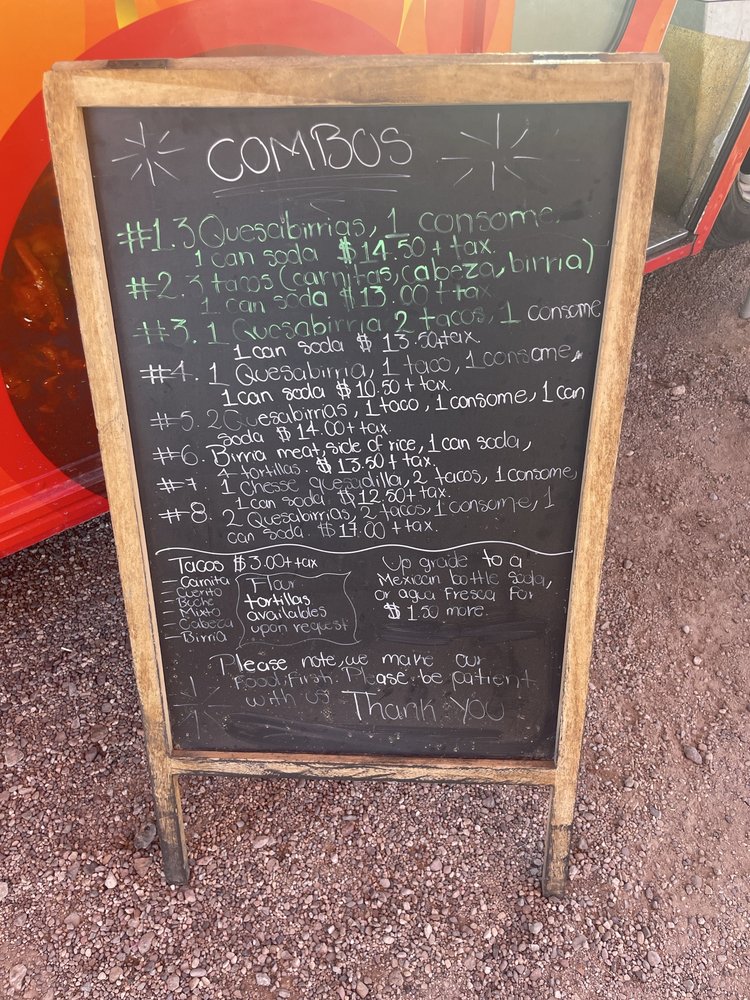 COMBOS
#1. 3 Quesabirrias, 1 consome.
1 can soda $14.50 + tax.
#2. 3 tacos (carnitas, cabeza, birria)
1 can soda $13.00 + tax
#3. 1 Quesabirria 2 tacos, 1 consome
1 can soda $13.50 + tax.
#4. 1 Quesabirria, 1 taco, 1 consome,
1 can soda $10.50 + tax.
#5. 2 Quesabirrias, 1 taco, 1 consome, 1 can
soda $14.00 + tax.
#6. Birria meat, side of rice, 1 can soda,
4 tortillas. $13.50 + tax.
#7. 1 Chesse quesadilla, 2 tacos, 1 consome,
1 can soda $12.50 + tax.
#8. 2 Quesabirrias, 2 tacos, 1 consome, 1
can soda. $17.00 + tax.
Tacos $3.00 + tax
- Carnita
- Cuerito
- Buche
- Mixto
- Cabeza
- Birria
Flour
tortillas
availables
upon request
Up grade to a
Mexican bottle soda,
or agua fresca for
$1.50 more.
Please note, we make our
Food Fresh. Please be patient
with us Thank you